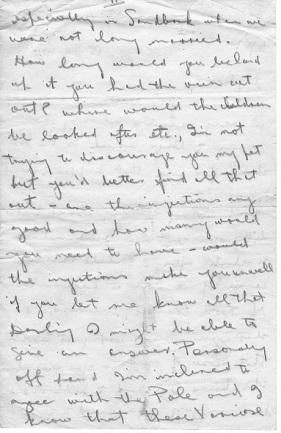 II
especially in Sandbank when we
were not long married.
How long would you be laid
up if you had the vein cut
out? where would the children
be looked after etc., I'm not
trying to discourage you my pet
but you'd better find all that
out - are the injections any
good and how many would
you need to have - would
the injections make you unwell
if you let me know all that
Darling I might be able to
give an answer. Personally
off hand I'm inclined to
agree with the Pole and I
know that these